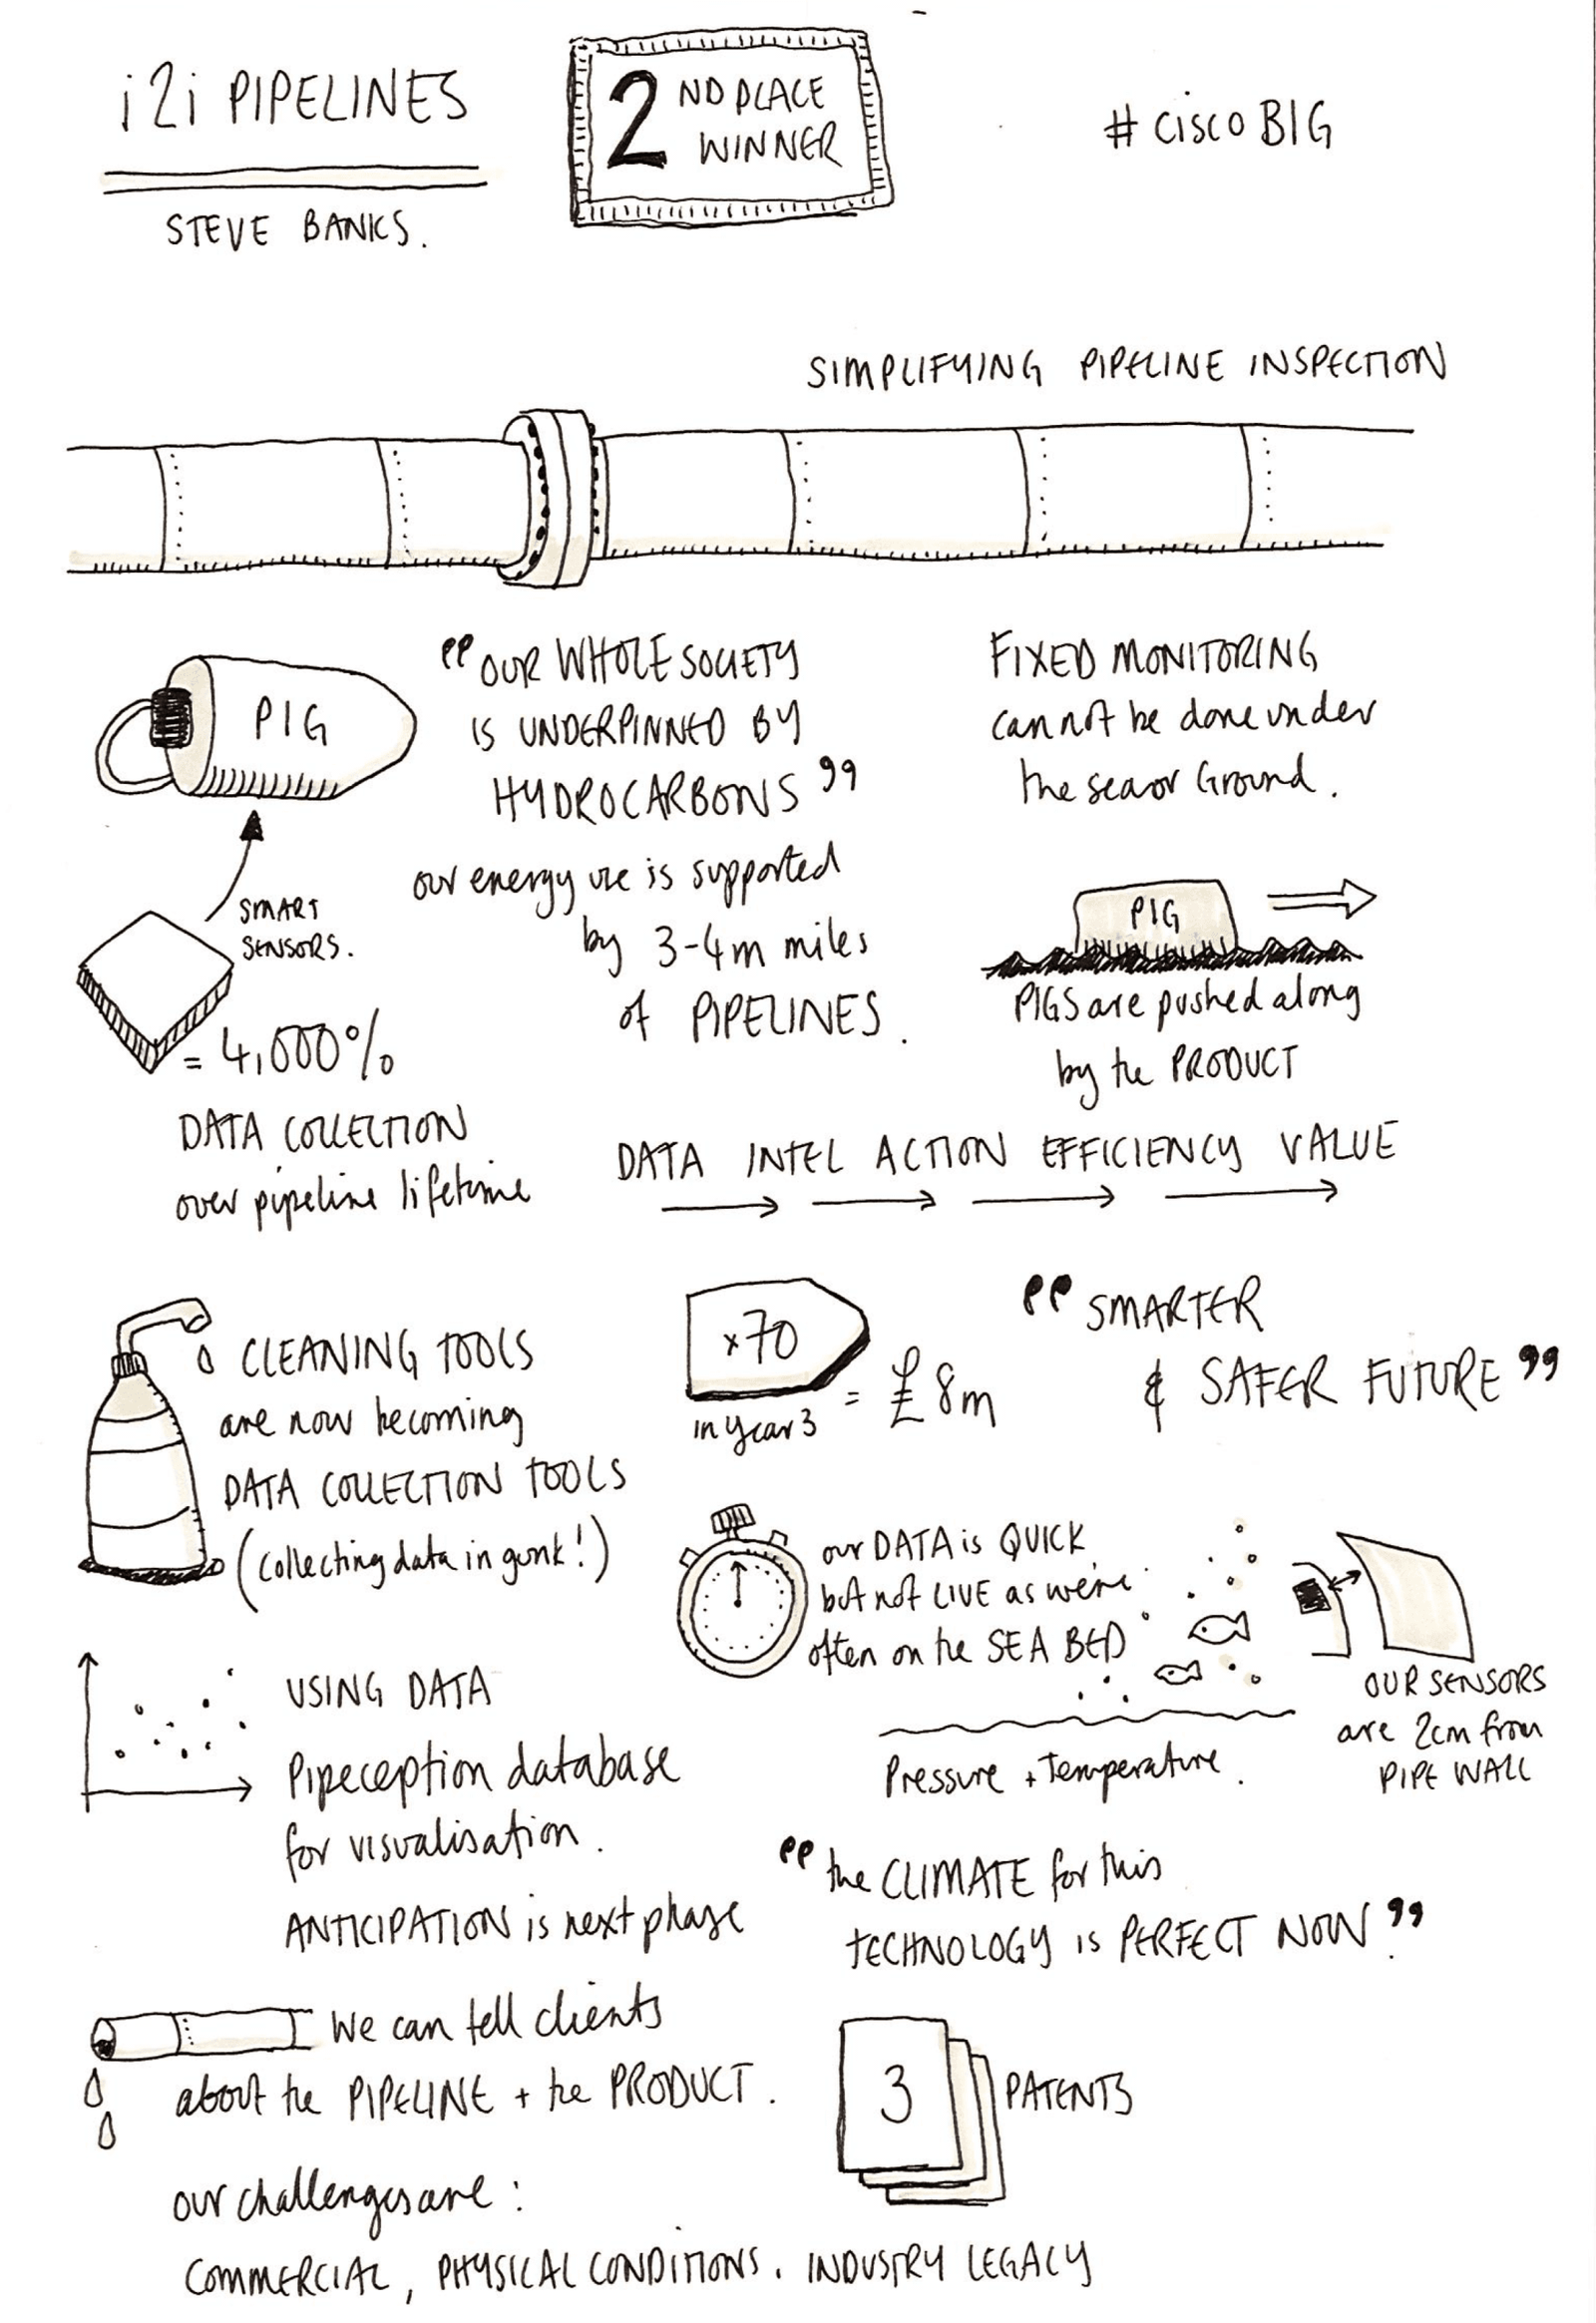 i2i PIPELINES
STEVE BANKS.
2ND PLACE
WINNER
# CISCO BIG
SIMPLIFYING PIPELINE INSPECTION
PIG
SMART
SENSORS.
= 4,000%
DATA COLLECTION
over pipeline lifetime
"OUR WHOLE SOCIETY
IS UNDERPINNED BY
HYDROCARBONS"
our energy use is supported
by 3-4m miles
of PIPELINES.
FIXED MONITORING
cannot be done under
the sea or Ground.
PIG
PIGS are pushed along
by the PRODUCT
DATA INTEL ACTION EFFICIENCY VALUE
CLEANING TOOLS
are now becoming
DATA COLLECTION TOOLS
(collecting data in gunk!)
x70
in year 3
= £8m
"SMARTER
& SAFER FUTURE"
our DATA is QUICK,
but not LIVE as we're
often on the SEA BED
Pressure + Temperature.
OUR SENSORS
are 2cm from
PIPE WALL
USING DATA
Pipeception database
for visualisation.
ANTICIPATION is next phase
"the CLIMATE for this
TECHNOLOGY is PERFECT NOW."
We can tell clients
about the PIPELINE + the PRODUCT.
3
PATENTS
our challenges are:
COMMERCIAL, PHYSICAL CONDITIONS. INDUSTRY LEGACY